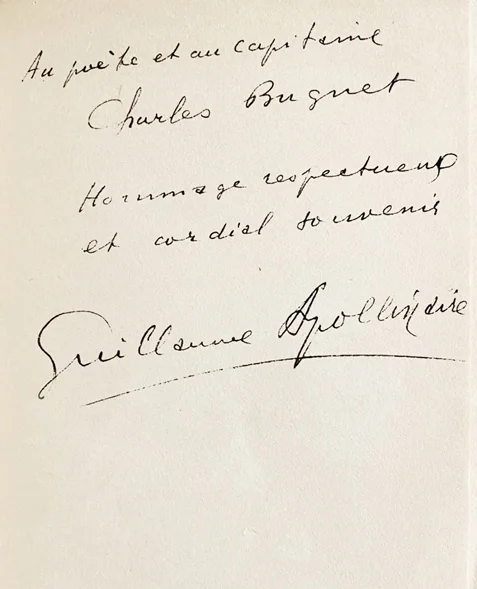 Au poète et au capitaine
Charles Bugnet
Hommage respectueux
et cordial souvenir
Guillaume Apollinaire